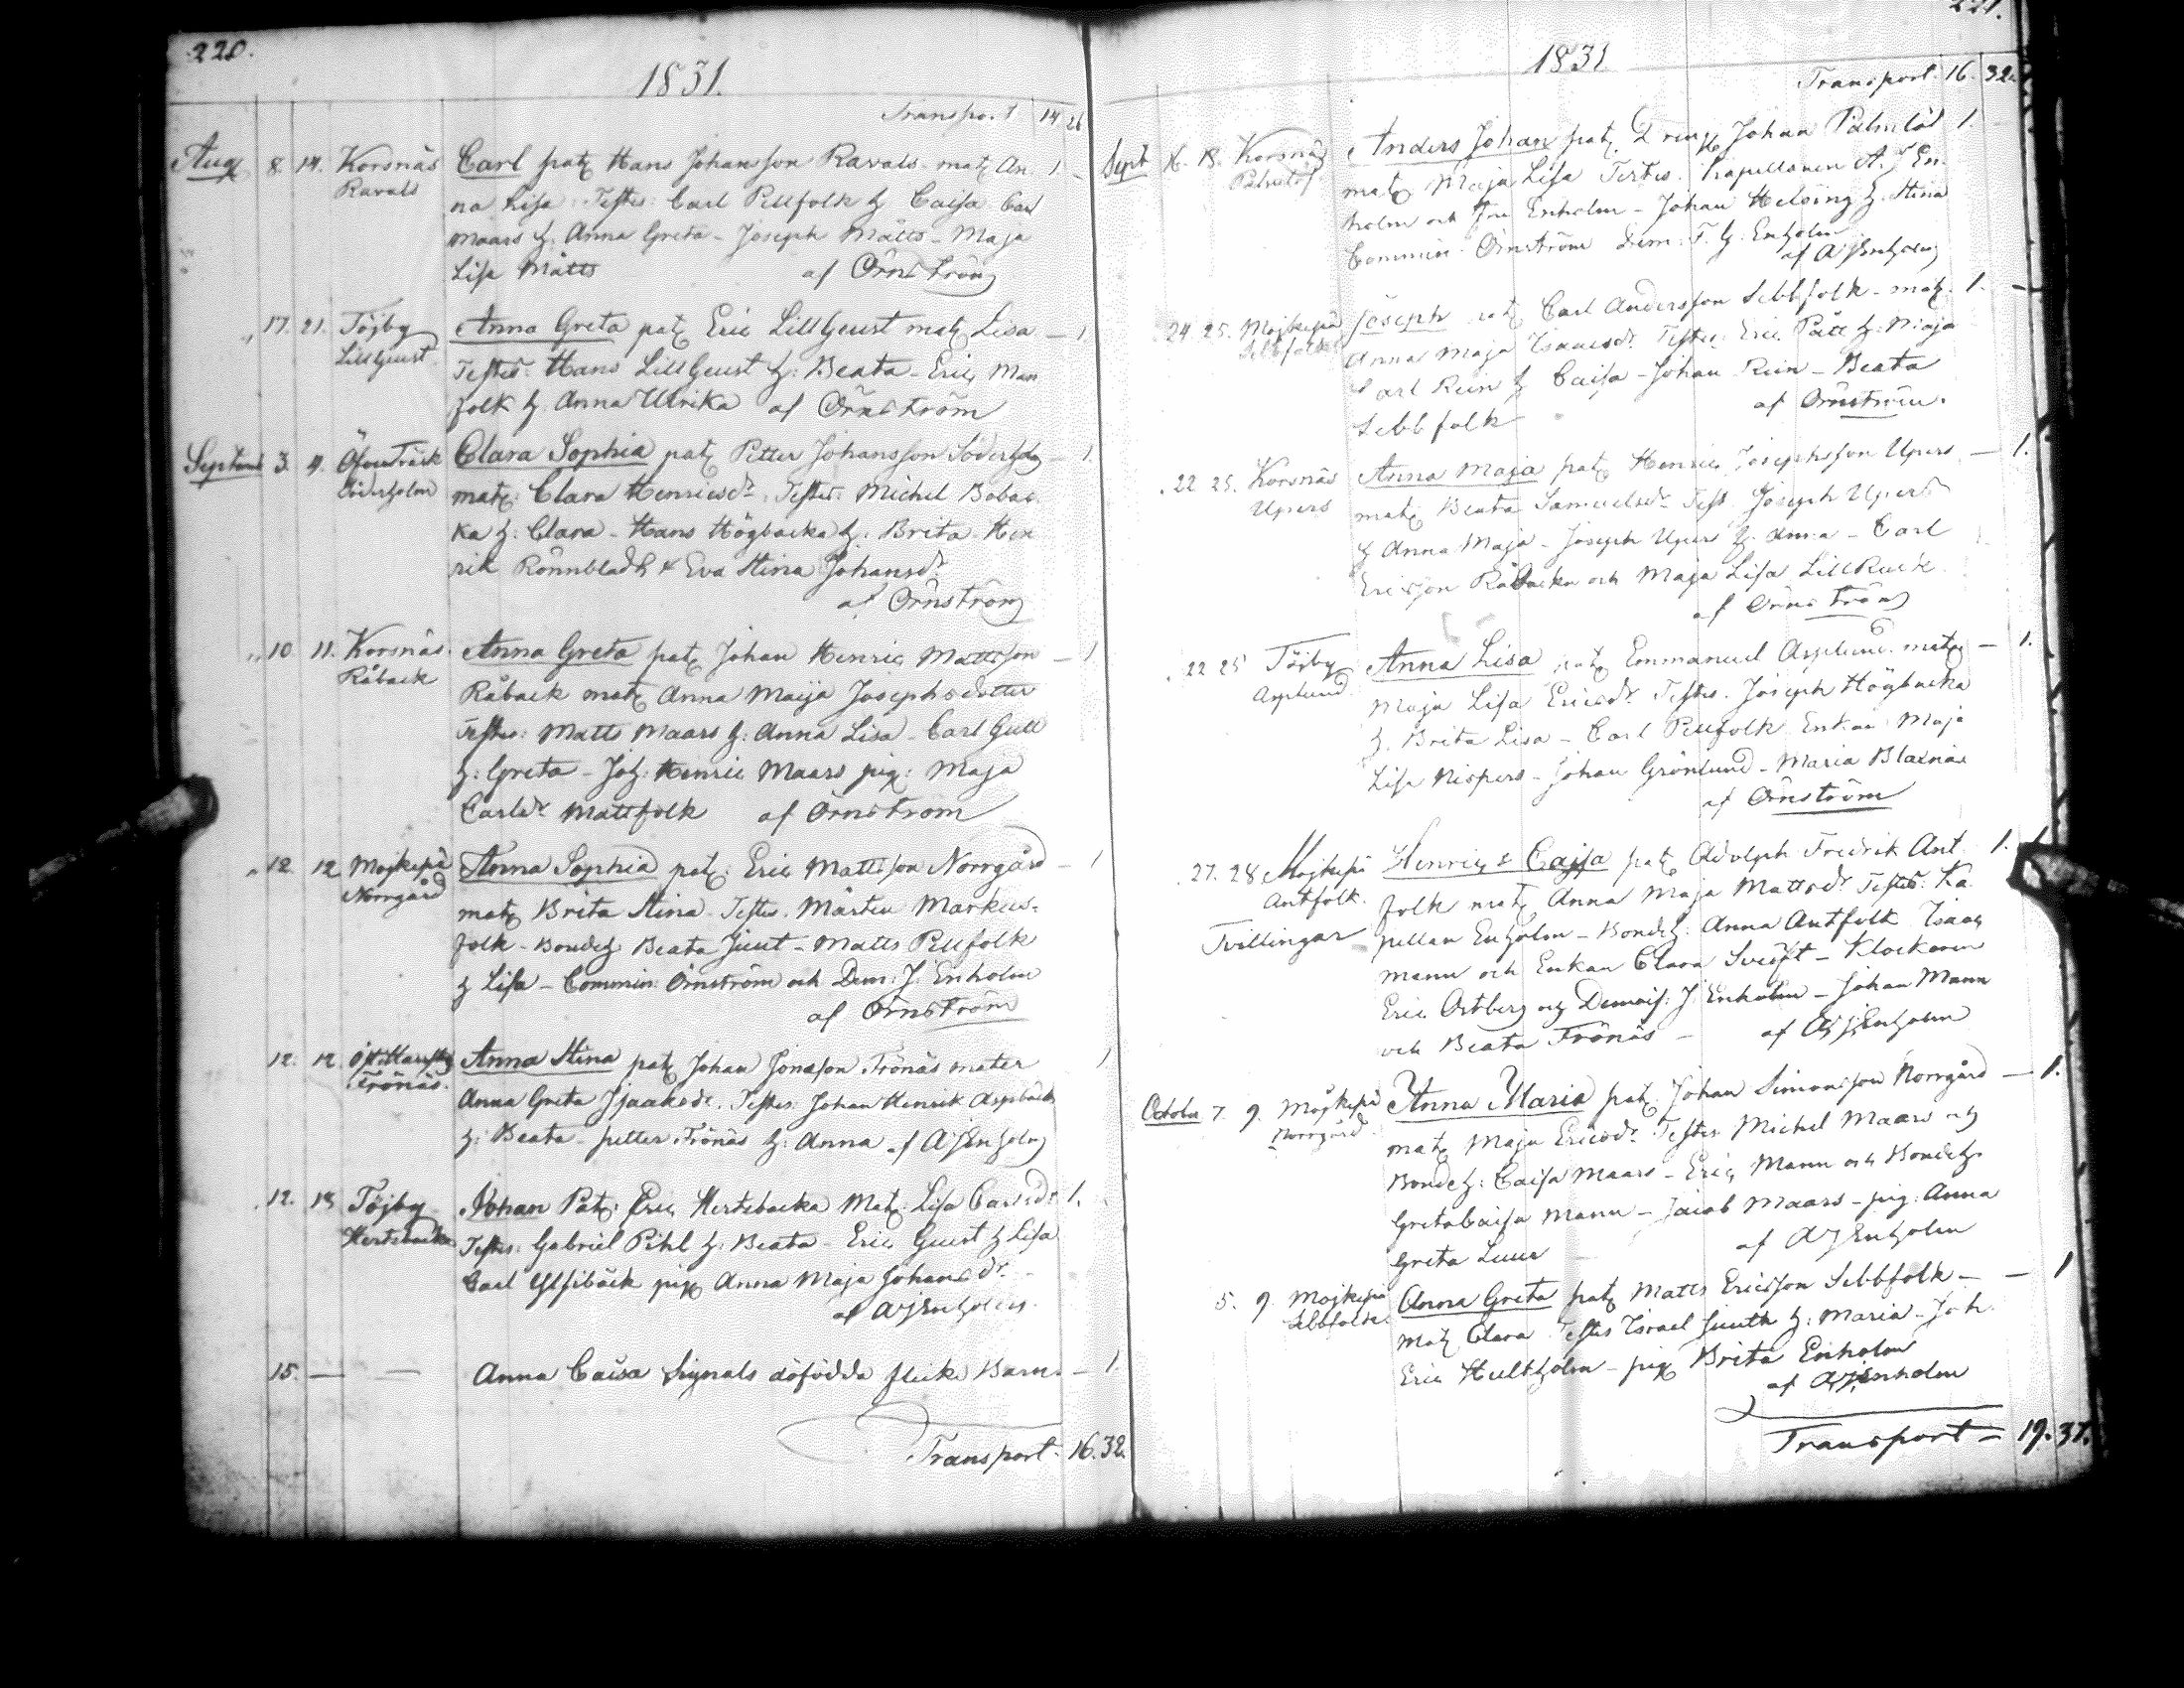 220.
1831.
Transport 14 26
Aug 8. 14. Korsnäs Carl pat. Hans Johansson Ravals mat. An 1. -
Ravals na Lisa Testes: Carl Pellfolk h. Caisa Carl
Maars h. Anna Greta - Joseph Mätts - Maja
Lisa Mätts af Örnström
" 17. 21. Töjby Anna Greta pat. Eric LillGeust mat. Lisa - 1
LillGeust Testes: Hans LillGeust h: Beata - Eric Man
folk h. Anna Ulrika af Örnström
Septemb 3. 4. Öfverträsk Clara Sophia pat. Petter Johansson Söderholm - 1.
Söderholm mat. Clara Henricsdr. Testes: Michel Bobac
ka h: Clara - Hans Högbacka h: Brita Hen
rik Rönnbladh & Eva Stina Johansdr
af Örnström
" 10 11. Korsnäs Anna Greta pat. Johan Henric Mattsson - 1
Råback Råback mat. Anna Maija Josephsdotter
Testes: Matts Maars h: Anna Lisa - Carl Gull
h: Greta - Joh: Henric Maars pig: Maja
Carlsdr Mattfolk af Örnström
" 12. 12 Mojkepä Anna Sophia pat. Eric Mattsson Norrgård - 1
Norrgård mat. Brita Stina. Testes. Mårten Markus-
folk - Bondeh. Beata Juut - Matts Pellfolk
h Lisa - Commin: Örnström och Dem: J. Enholm
af Örnström
12. 12. Anna Stina pat. Johan Jonasson Frönäs mater 1
Frönäs. Anna Greta Isaaksdr. Testes: Johan Henrik Aspback
h: Beata - petter Frönäs h: Anna af AJEnholm
12. 13 Töjby Johan Pat. Eric Hertsbacka Mat. Lisa Carlsdr 1.
Hertsbacka Testes: Gabriel Pihl h: Beata - Eric Geust h Lisa
Carl pig. Anna Maja Johansdr
af AJEnholm
15. — — Anna Caisa Signals döfödda flicke Barn. - 1
Transport. 16. 32.
221.
1831
Transport. 16. 32.
Sept 16. 18. Korsnäs Anders Johan pat. Dreng. Johan Palmlöf 1.
Palmlöf mat. Maja Lisa Testes. Kapellanen A. J En-
holm och fru Enholm - Johan Helsing h. Stina
Commin. Örnström Dem: F. h. Enholm
af AJEnholm
24. 25. Mojkepä Joseph pat. Carl Andersson Sebbfolk - mat. 1. -
Sebbfolk Anna Maja Isaacsdr. Testes: Eric Pått h: Maja
Carl Rein h Caisa - Johan Rein - Beata
Sebbfolk af Örnström.
. 22 25. Korsnäs Anna Maja pat. Henric Josephsson Upers - 1.
Upers mat. Beata Samuelsdr. Test Joseph Upers
h Anna Maja - Joseph Upers h. Anna - Carl
Ericsson Råbacka och Maja Lisa LillRuck
af Örnström
. 22 25 Töjby Anna Lisa pat. Emmanuel Asplund. mat. - 1.
Asplund Maja Lisa Ericsdr Testes. Joseph Högbacka
h. Brita Lisa - Carl Pellfolk Enkan Maja
Lisa Nispers - Johan Grönlund - Maria Blaxnäs
af Örnström
. 27. 28 Mojkepä Henric & Cajsa pat. Adolph Fredrik Ant. 1. 1.
Antfolk. folk mat. Anna Maja Mattsdr Testes: Ka
Tvillingar pellan Enholm - Bondeh: Anna Antfolk Isaac
Mann och Enkan Clara - Klockaren
Eric Östberg och Demois: J. Enholm - Johan Mann
och Beata Frönäs - af AJEnholm
October 7. 9. Mojkepä Anna Maria pat. Johan Simonsson Norrgård - 1.
Norrgård mat. Maja Ericsdr. Testes Michel Maars och
Bondeh: Caisa Maars - Eric Mann och Bondeh.
Greta Caisa Mann - Jacob Maars - pig. Anna
Greta Luur af AJEnholm
5. 9. Mojkepä Anna Greta pat. Matts Ericsson Sebbfolk - - 1
Sebbfolk Mat. Clara Testes Israel Juuth h: Maria - Joh.
Eric Hultholm - pig. Brita Enholm
af AJEnholm
Transport - 19. 37.